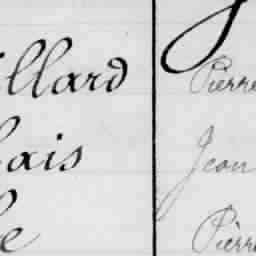 illard Pierre
lais Jean
le Pierre